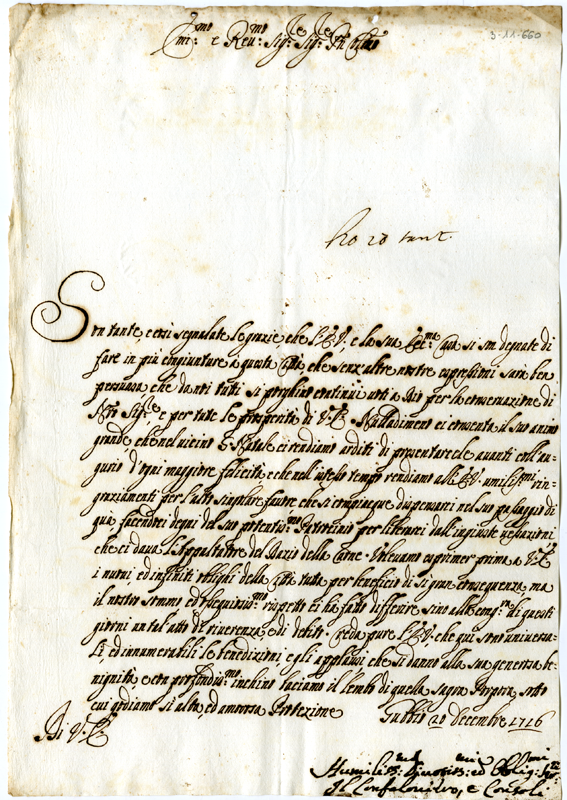 Em:mo e Reu:mo Sig:re Sig:re P:ne Col:mo
3-11-660
Son tante, e cosi segnalate le grazie che l'E.V., e la sua Ecc:ma Casa si son degnate di
fare in più congiunture a questa Città, che senz'altre nostre espressioni sarà ben
persuasa che da noi tutti si porghino continui uoti a Dio per la conseruazione di
N'ro Sig:re, e per tutte le prosperità di V.E. Nulladimeno ci consenta il suo animo
grande che nel uicino S. Natale ci rendiamo arditi di presentarcele auanti coll'au-
gurio d'ogni maggiore felicità, e che nell'istesso tempo rendiamo all'E.V. umiliss:mi rin-
graziamenti per l'alto singolare fauore che si compiacque dispensarci nel suo passaggio di
qua, facendoci degni del suo potentiss:mo Patrocinio per liberarci dall'ingiuste uessazioni
che ci daua l'Appaltatore del Dazio della Carne. Voleuamo esprimer prima a V.E.
i nostri ed infiniti obblighi della Città tutta per beneficio di si gran conseguenza, ma
il nostro sommo ed ossequiosiss:mo rispetto ci ha fatto differire sino all' di questi
giorni un tal atto di riuerenza, e di debito. Creda pure l'E.V. che qui sono uniuersa-
li, ed innumerabili le benedizioni, e gli applausi che si danno alla sua generosa be-
nignità, e con profondiss:mo inchino baciamo il lembo di quella sagra Porpora, sotto
cui godiamo si alta, ed amorosa Protezione Gubbio 20 Decembre 1716
Di V.E.
Humiliss:mi Diuotiss:mi ed Obblig:mi Ser:ri
Il Confaloniero, e Consoli